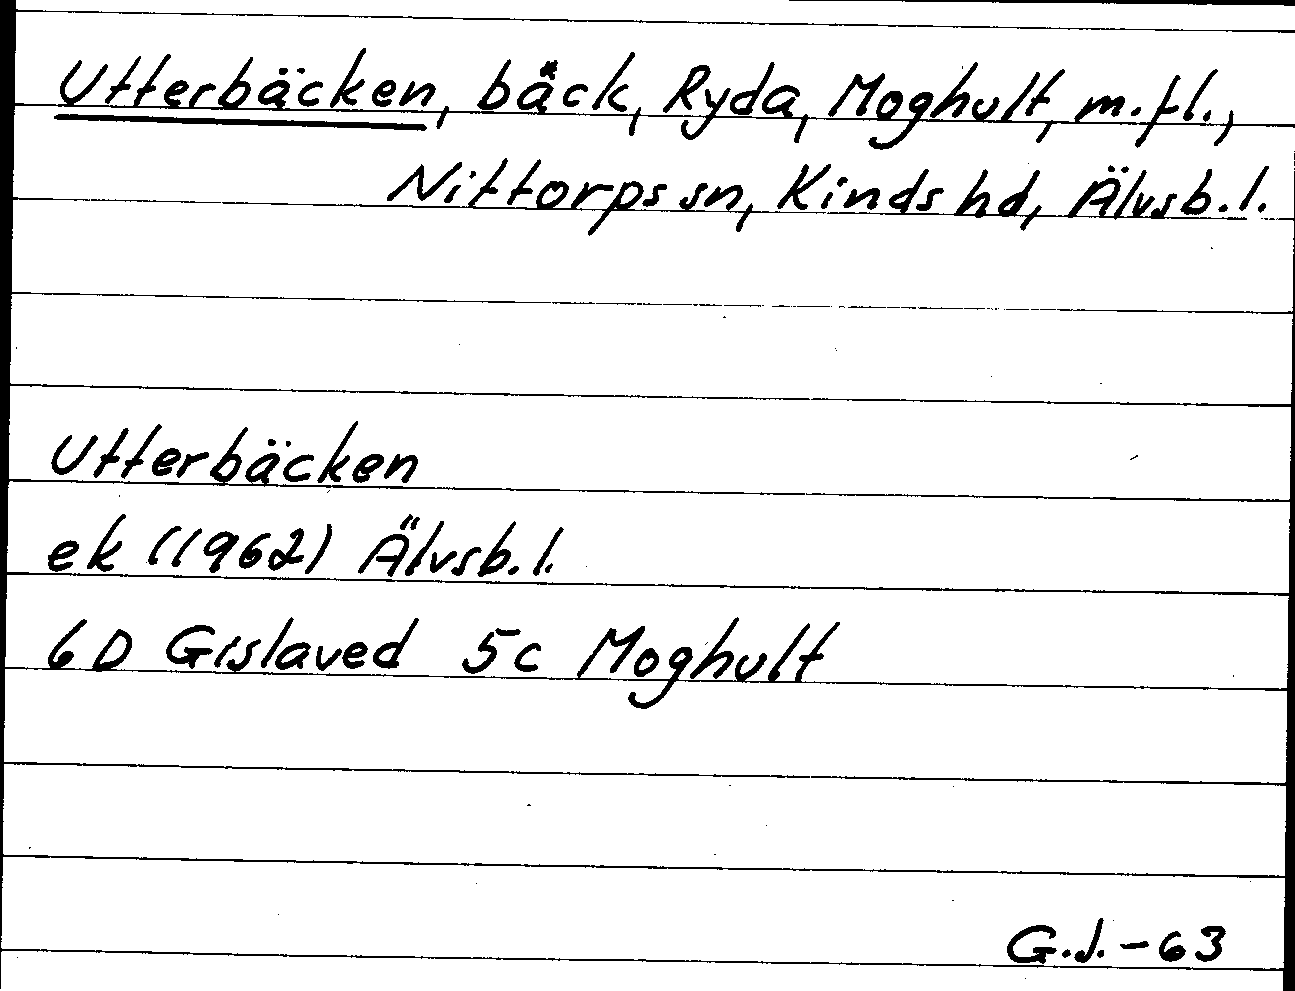 Utterbäcken, bäck, Ryda, Moghult, m.fl.,
Nittorps sn, Kinds hd, Älvsb.l.
Utterbäcken
ek (1962) Älvsb.l.
6D Gislaved 5c Moghult
G.J.-63